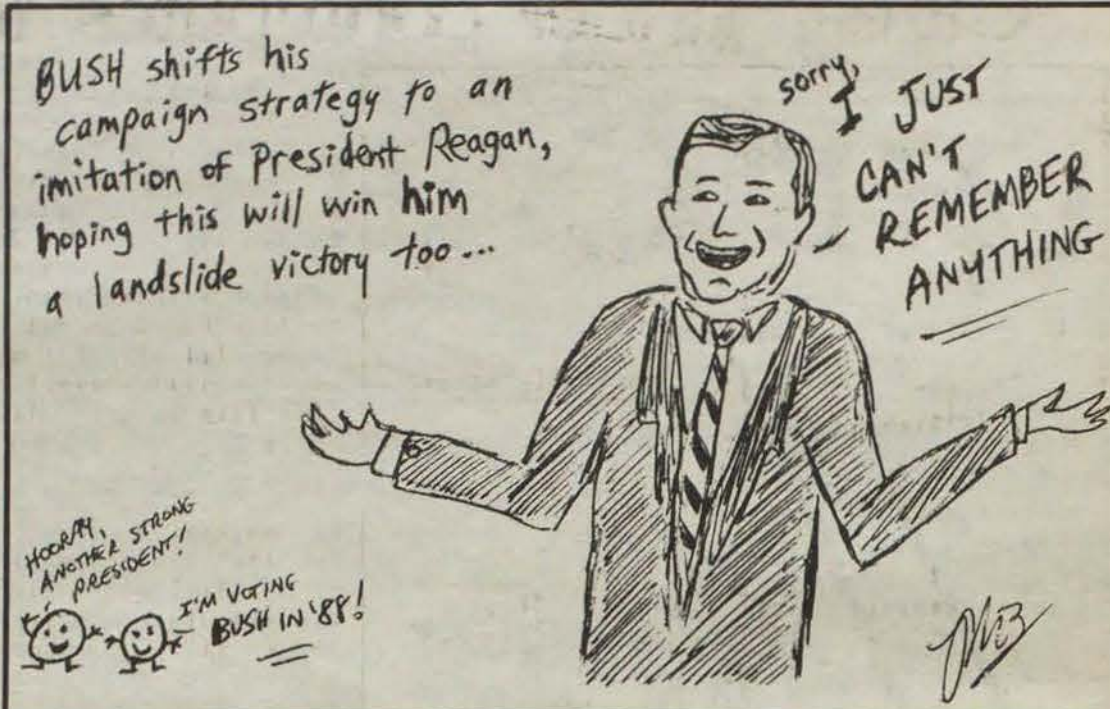 BUSH shifts his
campaign strategy to an
imitation of President Reagan,
hoping this will win him
a landslide victory too...
sorry,
I JUST
CAN'T
REMEMBER
ANYTHING
HOORAY,
ANOTHER STRONG
PRESIDENT!
I'M VOTING
BUSH IN '88!